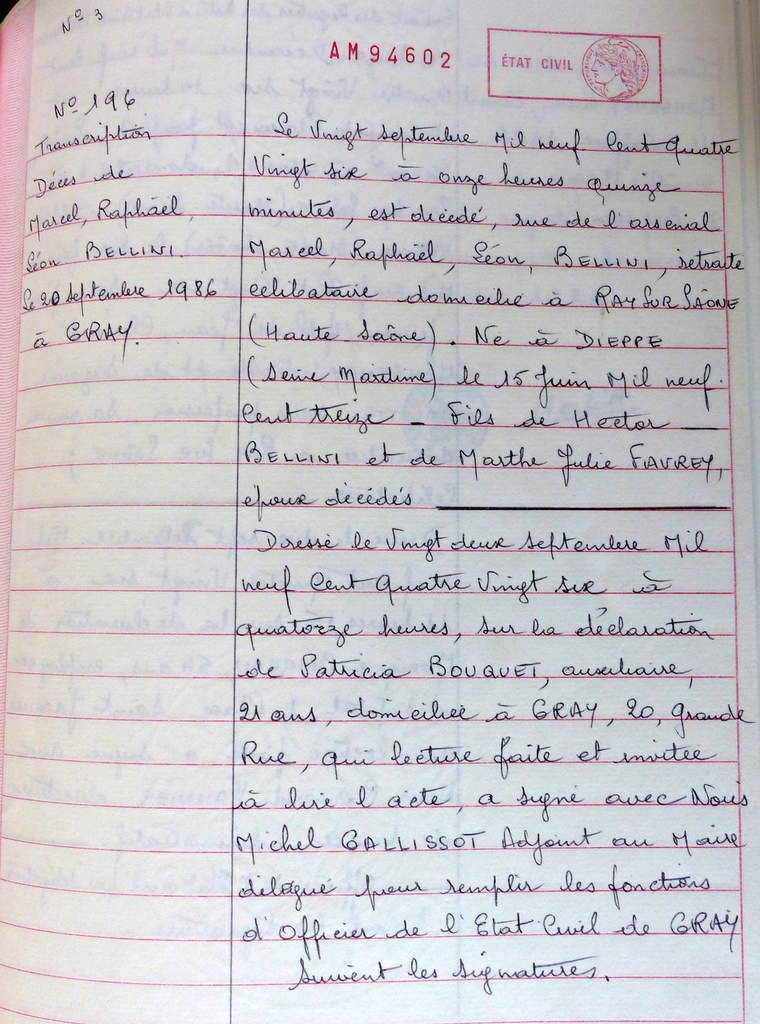 N° 3
AM94602
ÉTAT CIVIL
N° 196
Transcription
Décès de
Marcel, Raphaël,
Léon BELLINI.
Le 20 septembre 1986
à GRAY.
Le Vingt septembre Mil neuf Cent quatre
Vingt six à onze heures quinze
minutes, est décédé, rue de l'arsenal
Marcel, Raphaël, Léon, BELLINI, retraité
célibataire domicilié à RAY SUR SAÔNE
(Haute Saône). Né à DIEPPE
(Seine Maritime) le 15 Juin Mil neuf
Cent treize - Fils de Hector
BELLINI et de Marthe Julie FAVREY,
époux décédés
Dressé le Vingt deux septembre Mil
neuf Cent Quatre Vingt six à
quatorze heures, sur la déclaration
de Patricia BOUQUET, auxiliaire,
21 ans, domiciliée à GRAY, 20, Grande
Rue, qui lecture faite et invitée
à lire l'acte, a signé avec Nous
Michel GALLISSOT Adjoint au Maire
délégué pour remplir les fonctions
d'Officier de l'Etat Civil de GRAY
Suivent les signatures.